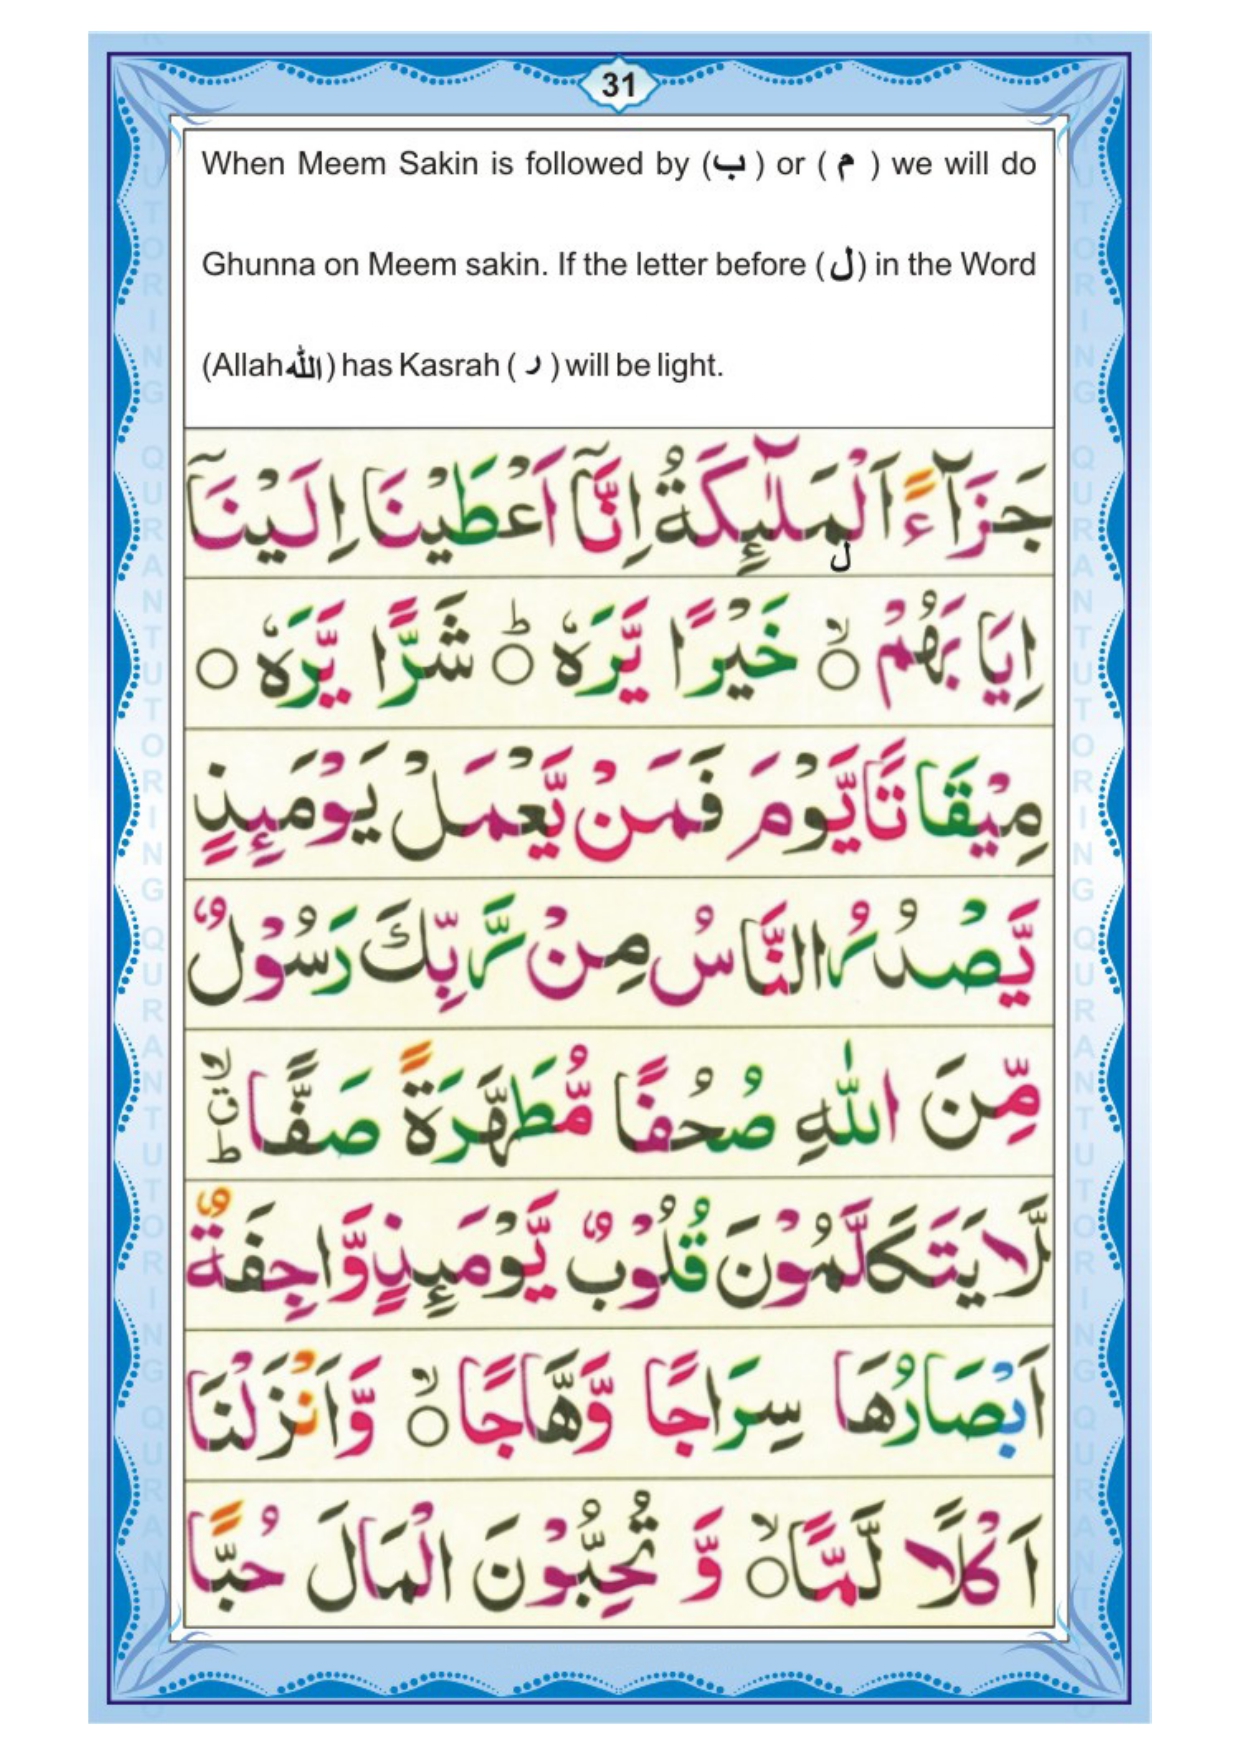 31
When Meem Sakin is followed by (ب) or (م) we will do
Ghunna on Meem sakin. If the letter before (ل) in the Word
(Allah الله) has Kasrah (ر) will be light.
جَزَآءً اَلْمَلٰٓئِكَةُ اِنَّآ اَعْطَيْنَا اِلَيْنَآ
ل
اِيَا بَهُمْ ۙ خَيْرًا يَّرَهٗ ؕ شَرًّا يَّرَهٗ ○
مِيْقَاتًا يَّوْمَ فَمَنْ يَّعْمَلْ يَوْمَئِذٍ
يَّصْدُرُ النَّاسُ مِنْ رَّبِّكَ رَسُوْلٌ
مِّنَ اللّٰهِ صُحُفًا مُّطَهَّرَةً صَفًّا ۙ ق ؕ
لَّا يَتَكَلَّمُوْنَ قُلُوْبٌ يَّوْمَئِذٍ وَّاجِفَةٌ
اَبْصَارُهَا سِرَاجًا وَّهَّاجًا ۙ وَّاَنْزَلْنَا
اَكْلًا لَّمًّا ۙ وَّ تُحِبُّوْنَ الْمَالَ حُبًّا
QURAN TUTORING QURAN TUTORING
QURAN TUTORING QURAN TUTORING